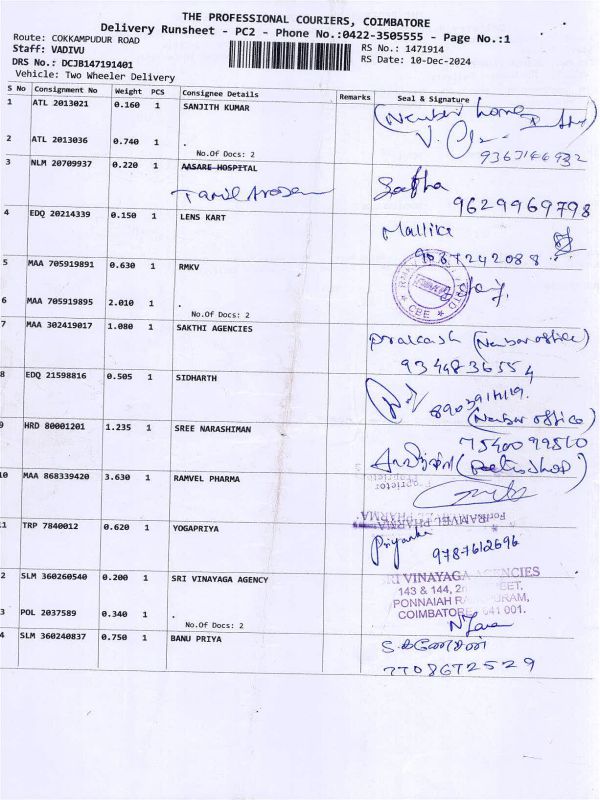 THE PROFESSIONAL COURIERS, COIMBATORE
Delivery Runsheet - PC2 - Phone No.:0422-3505555 - Page No.:1
Route: COKKAMPUDUR ROAD
RS No.: 1471914
Staff: VADIVU
RS Date: 10-Dec-2024
DRS No.: DCJB147191401
Vehicle: Two Wheeler Delivery
S No Consignment No Weight PCS Consignee Details Remarks Seal & Signature
1 ATL 2013021 0.160 1 SANJITH KUMAR
2 ATL 2013036 0.740 1 .
No.Of Docs: 2
3 NLM 20709937 0.220 1 AASARE HOSPITAL
9629969798
4 EDQ 20214339 0.150 1 LENS KART Mallika
9087242088
5 MAA 705919891 0.630 1 RMKV
CBE
6 MAA 705919895 2.010 1 .
No.Of Docs: 2
7 MAA 302419017 1.080 1 SAKTHI AGENCIES
8 EDQ 21598816 0.505 1 SIDHARTH
9 HRD 80001201 1.235 1 SREE NARASHIMAN
10 MAA 868339420 3.630 1 RAMVEL PHARMA
Proprietor
For RAMVEL PHARMA
11 TRP 7840012 0.620 1 YOGAPRIYA Priyanka
9787612696
2 SLM 360260540 0.200 1 SRI VINAYAGA AGENCY
SRI VINAYAGA AGENCIES
143 & 144,
PONNAIAH
COIMBATORE - 641 001.
3 POL 2037589 0.340 1 .
No.Of Docs: 2
4 SLM 360240837 0.750 1 BANU PRIYA
7708672529